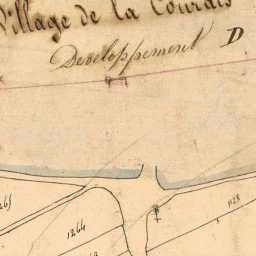 Village de la Courais
Developpement D
1265
1264
1128